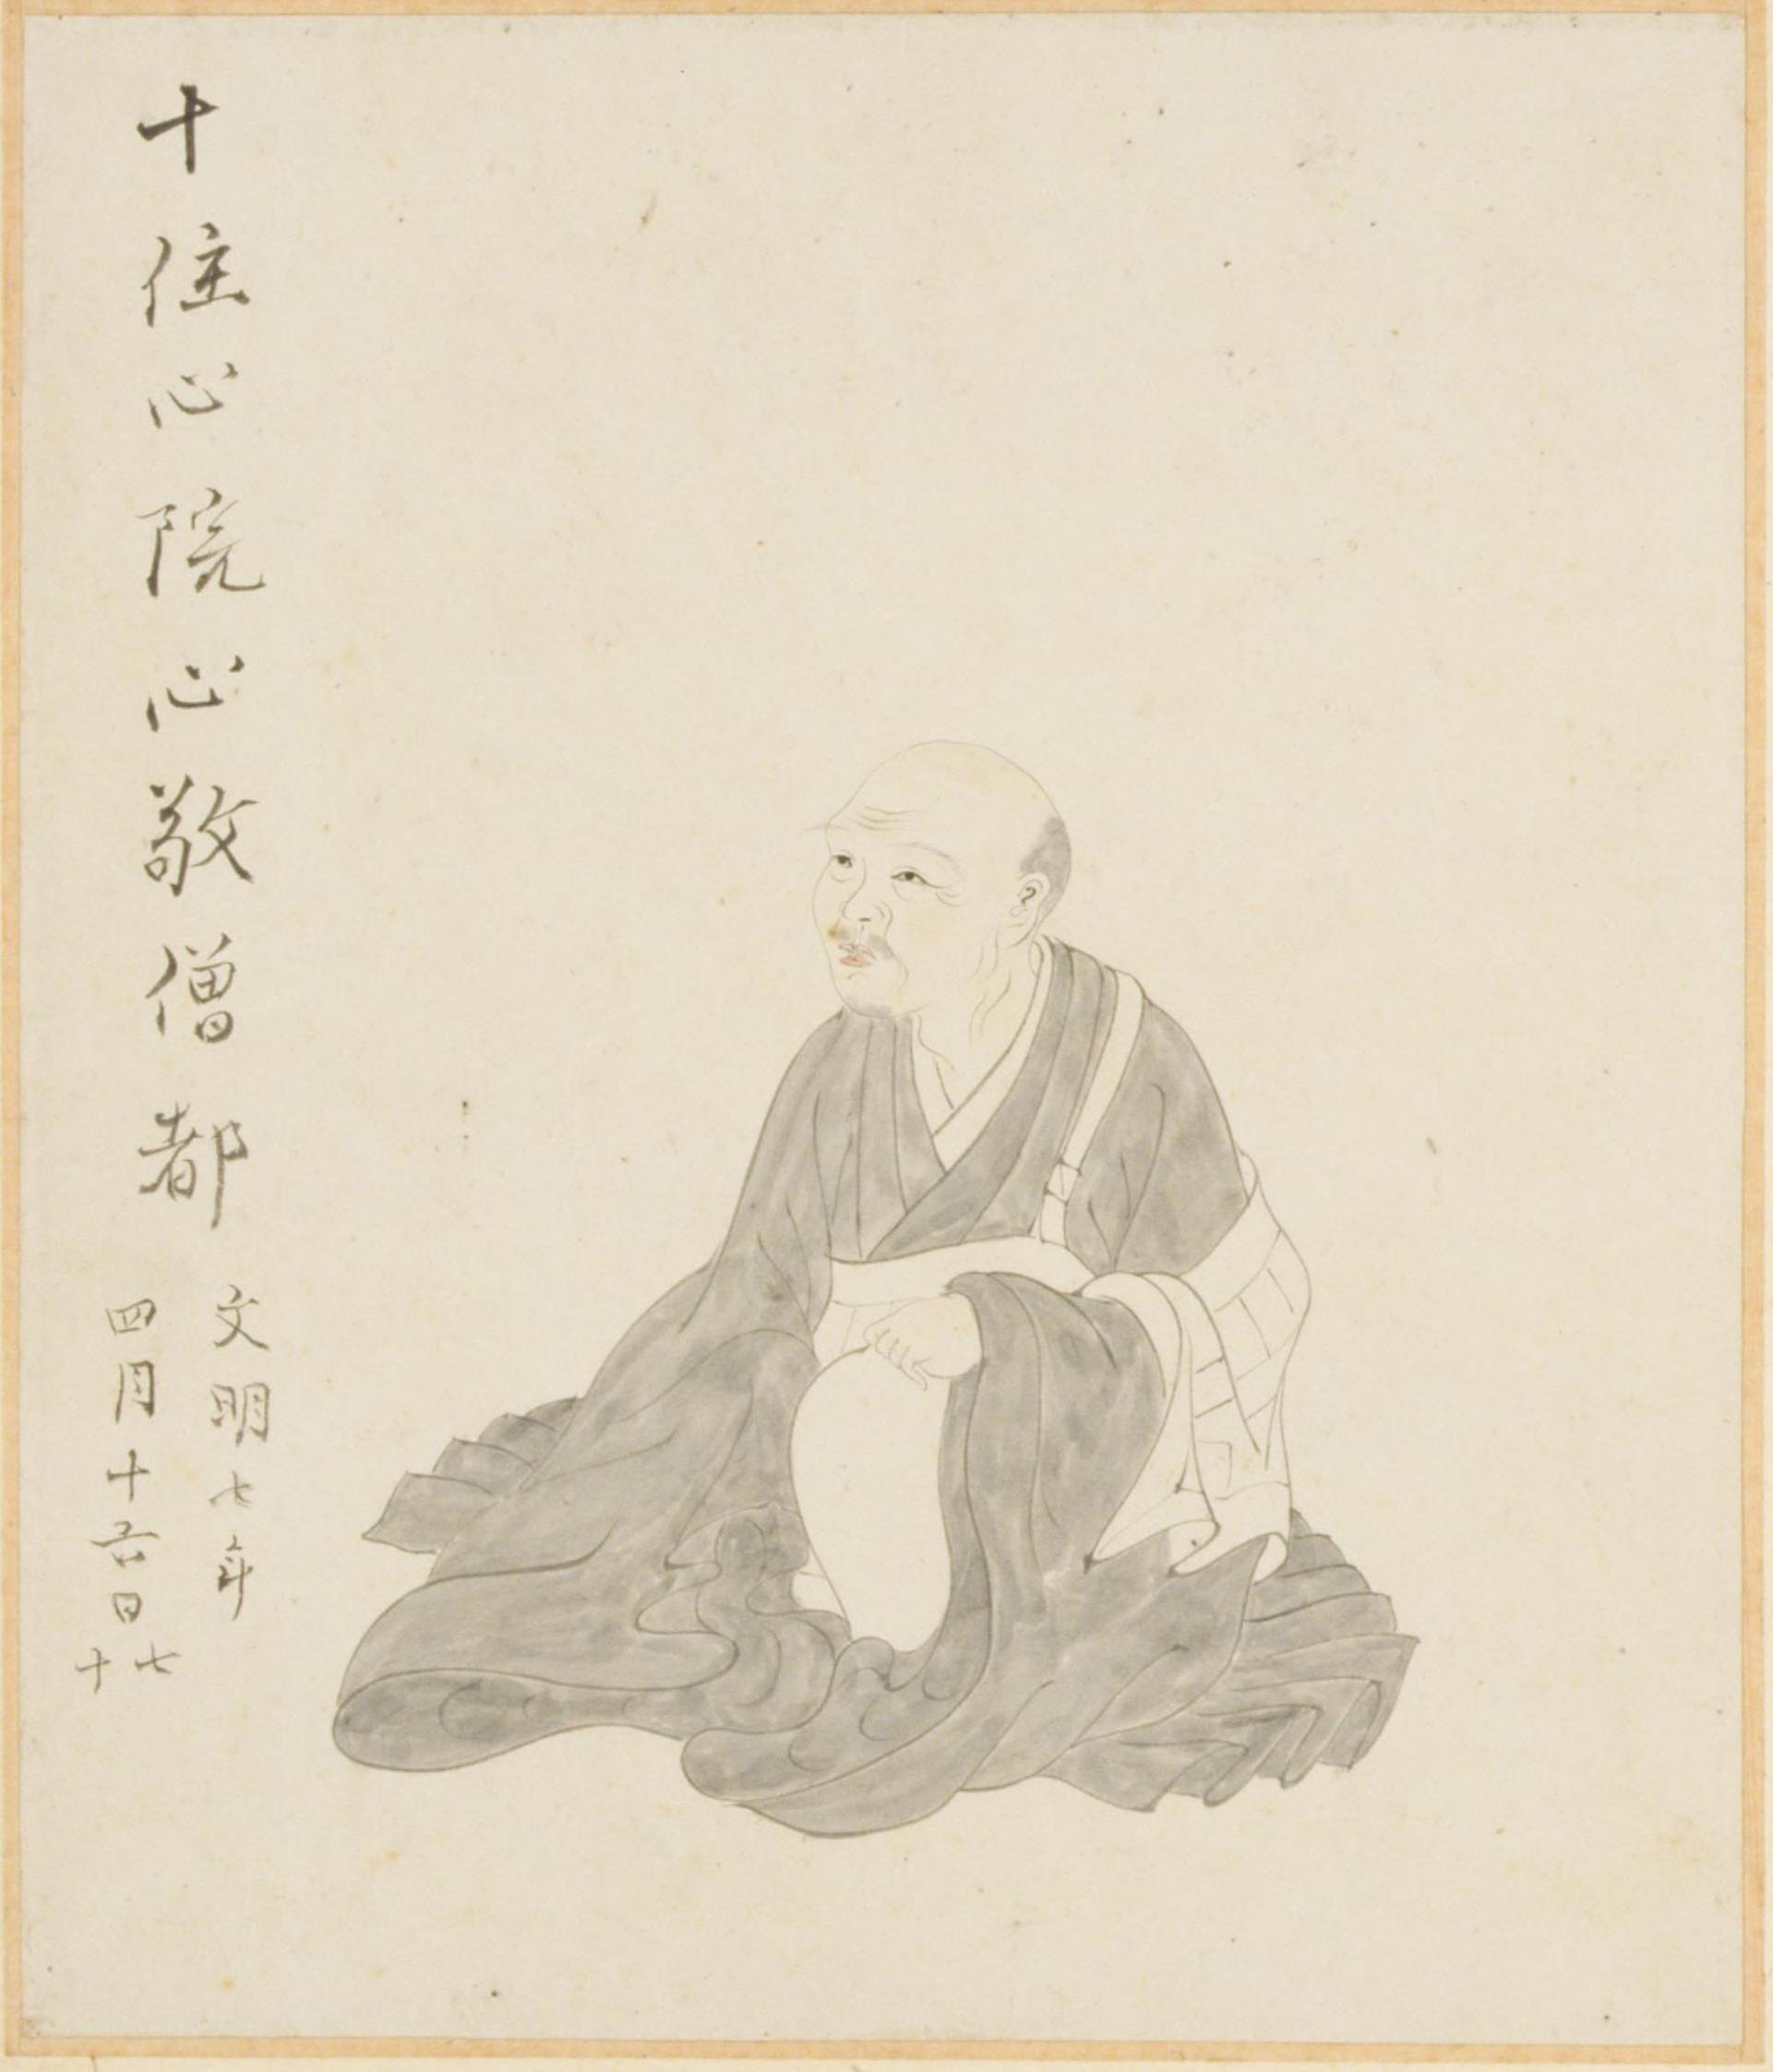 十住心院心敬僧都
文明七年
四月十六日
七十